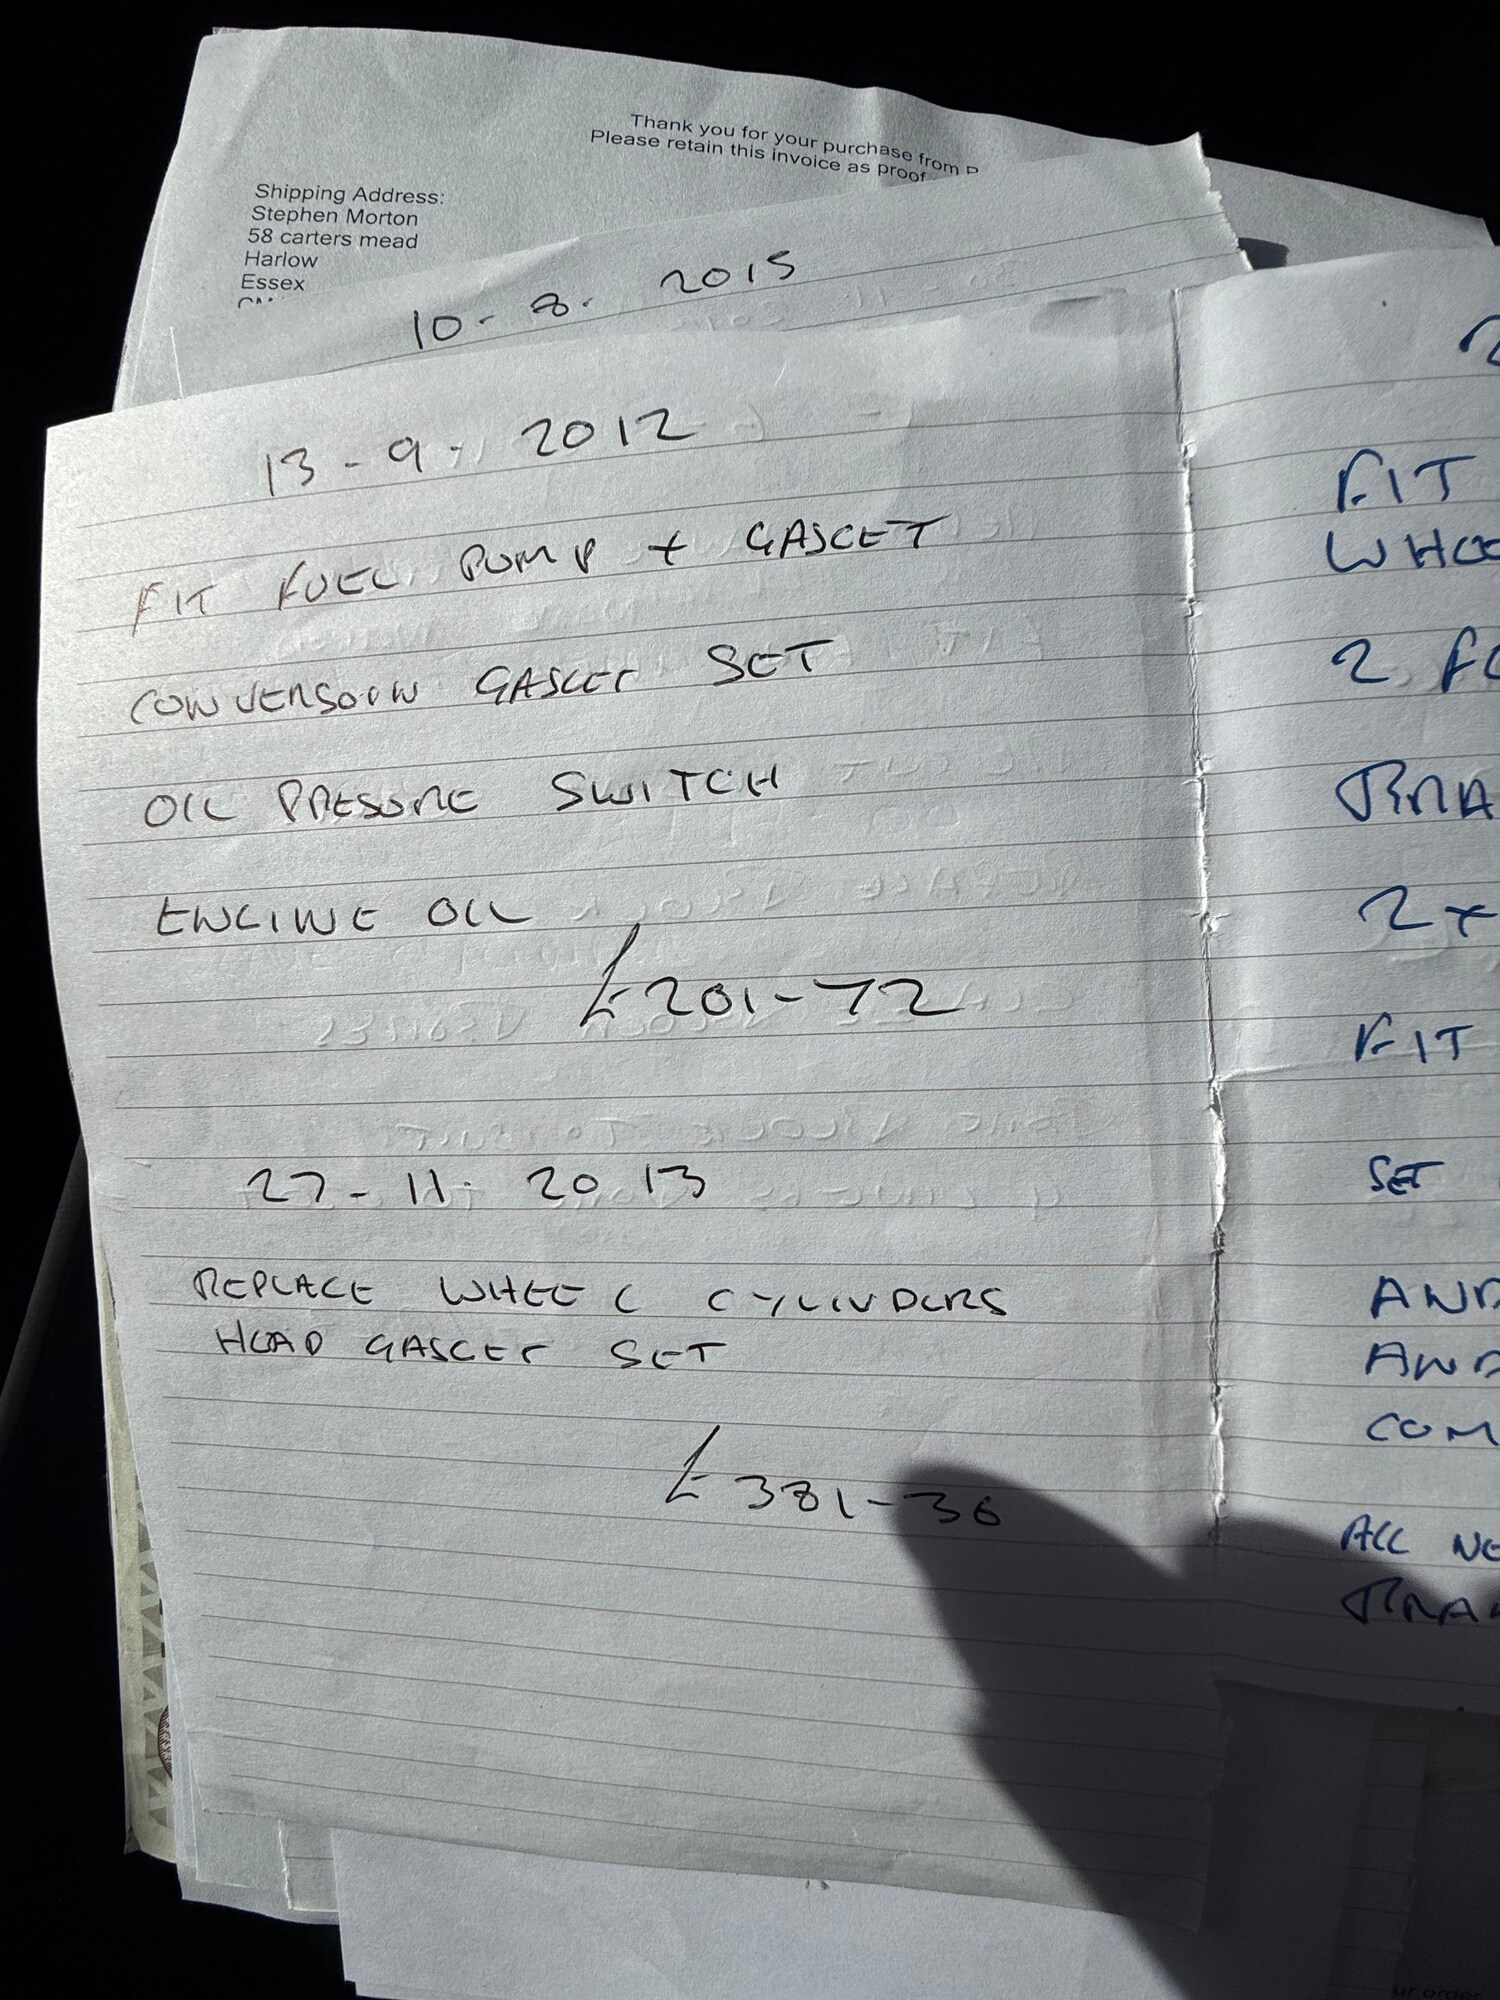 Thank you for your purchase from P
Please retain this invoice as proof
Shipping Address:
Stephen Morton
58 carters mead
Harlow
Essex
10 - 8 - 2015
13 - 9 - 2012
FIT FUEL PUMP + GASCET
CONVERSOIN GASCET SET
OIL PRESURE SWITCH
ENGINE OIL
£201-72
27 - 11 - 2013
REPLACE WHEEL CYLINDERS
HEAD GASCET SET
£381-36
FIT
2
2 x
FIT
SET
AND
AND
COM
ALL NE
BRA
ur order